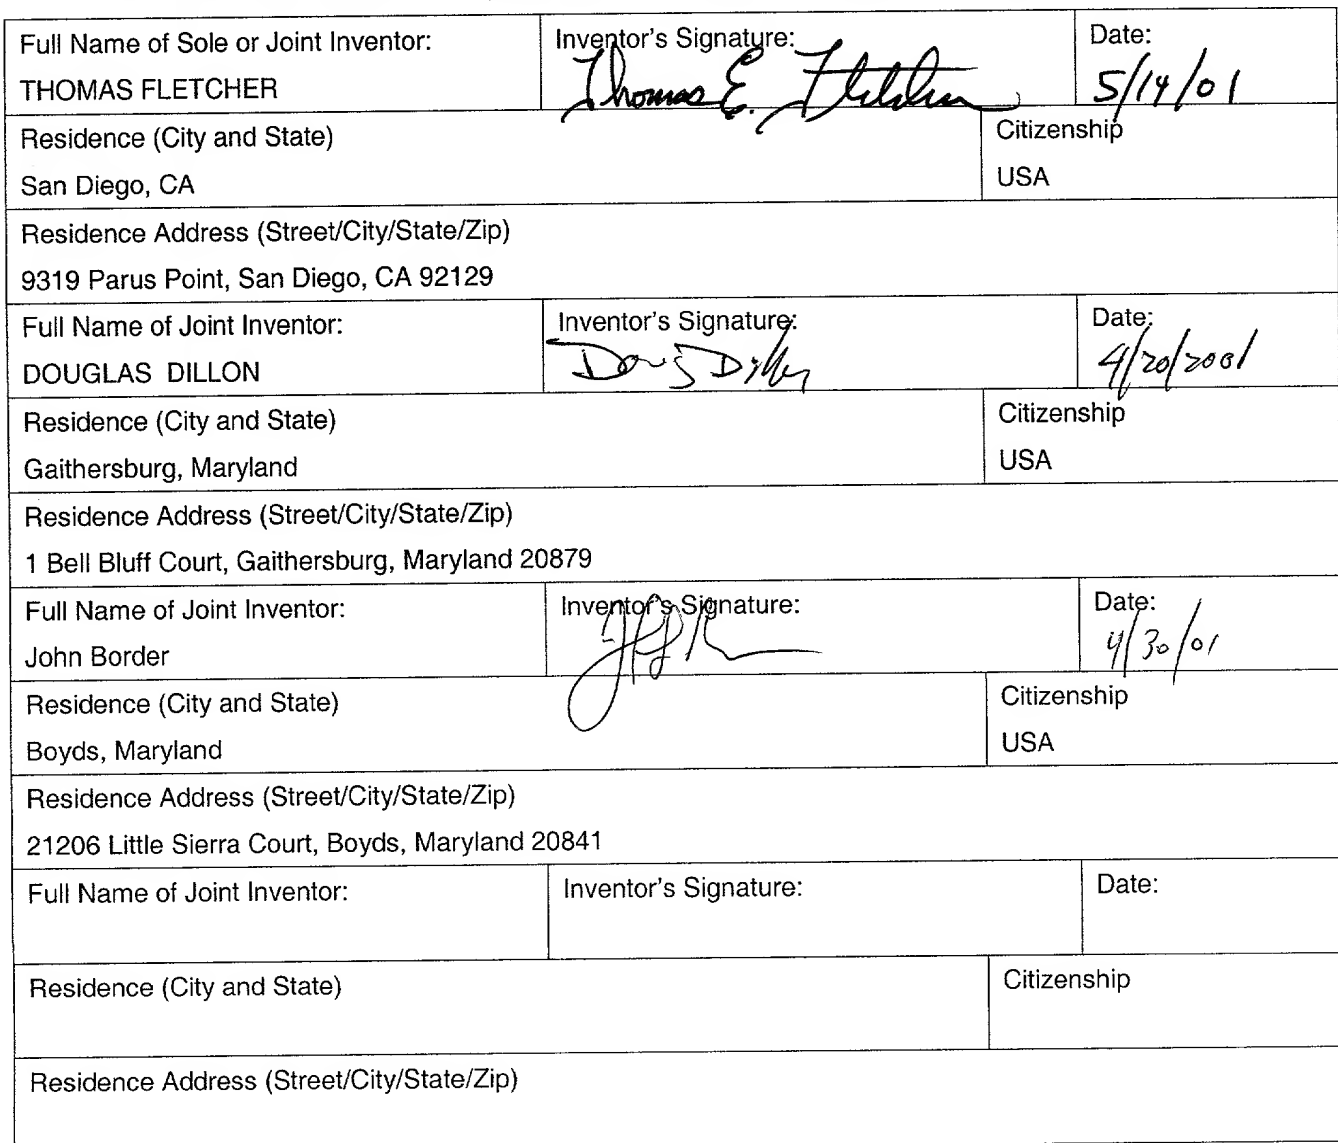 Full Name of Sole or Joint Inventor:
THOMAS FLETCHER
Inventor's Signature:
Thomas E. Fletcher
Date:
5/14/01
Residence (City and State)
San Diego, CA
Citizenship
USA
Residence Address (Street/City/State/Zip)
9319 Parus Point, San Diego, CA 92129
Full Name of Joint Inventor:
DOUGLAS DILLON
Inventor's Signature:
Doug Dillon
Date:
4/20/2001
Residence (City and State)
Gaithersburg, Maryland
Citizenship
USA
Residence Address (Street/City/State/Zip)
1 Bell Bluff Court, Gaithersburg, Maryland 20879
Full Name of Joint Inventor:
John Border
Inventor's Signature:
Date:
4/30/01
Residence (City and State)
Boyds, Maryland
Citizenship
USA
Residence Address (Street/City/State/Zip)
21206 Little Sierra Court, Boyds, Maryland 20841
Full Name of Joint Inventor:
Inventor's Signature:
Date:
Residence (City and State)
Citizenship
Residence Address (Street/City/State/Zip)